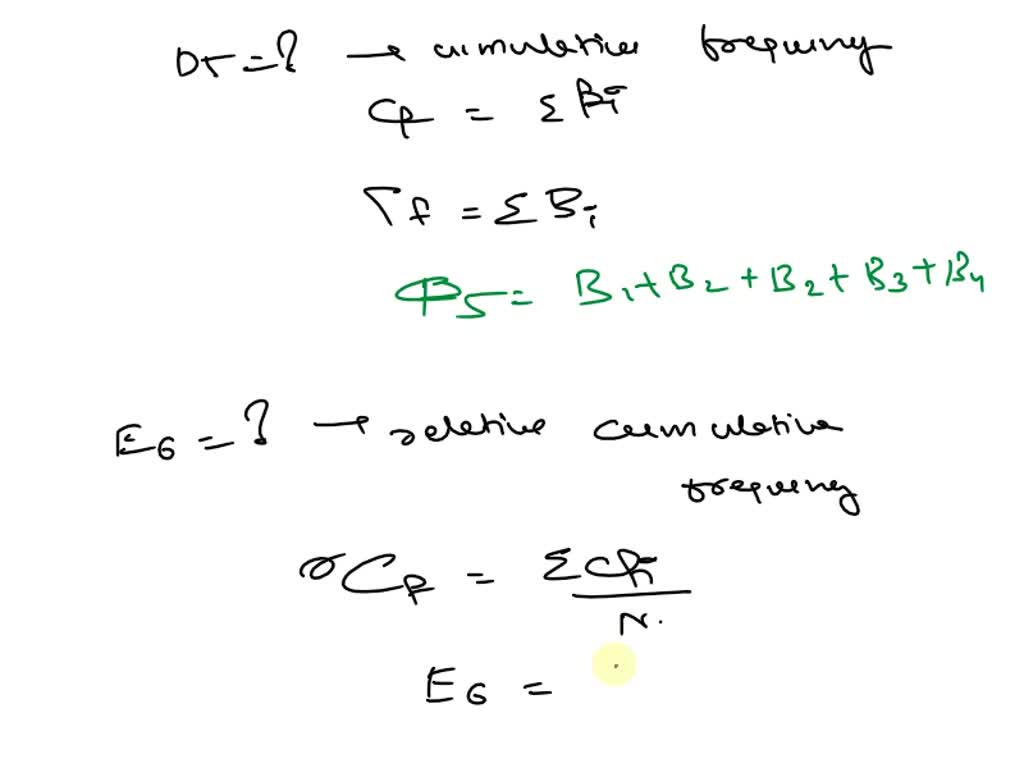 D5 = ? → cumulative frequency
Cf = Σ Bi
rf = Σ Bi
= B1 + B2 + B2 + B3 + B4
E6 = ? → relative cumulative
frequency
rCf = Σ Cfi / N.
E6 =